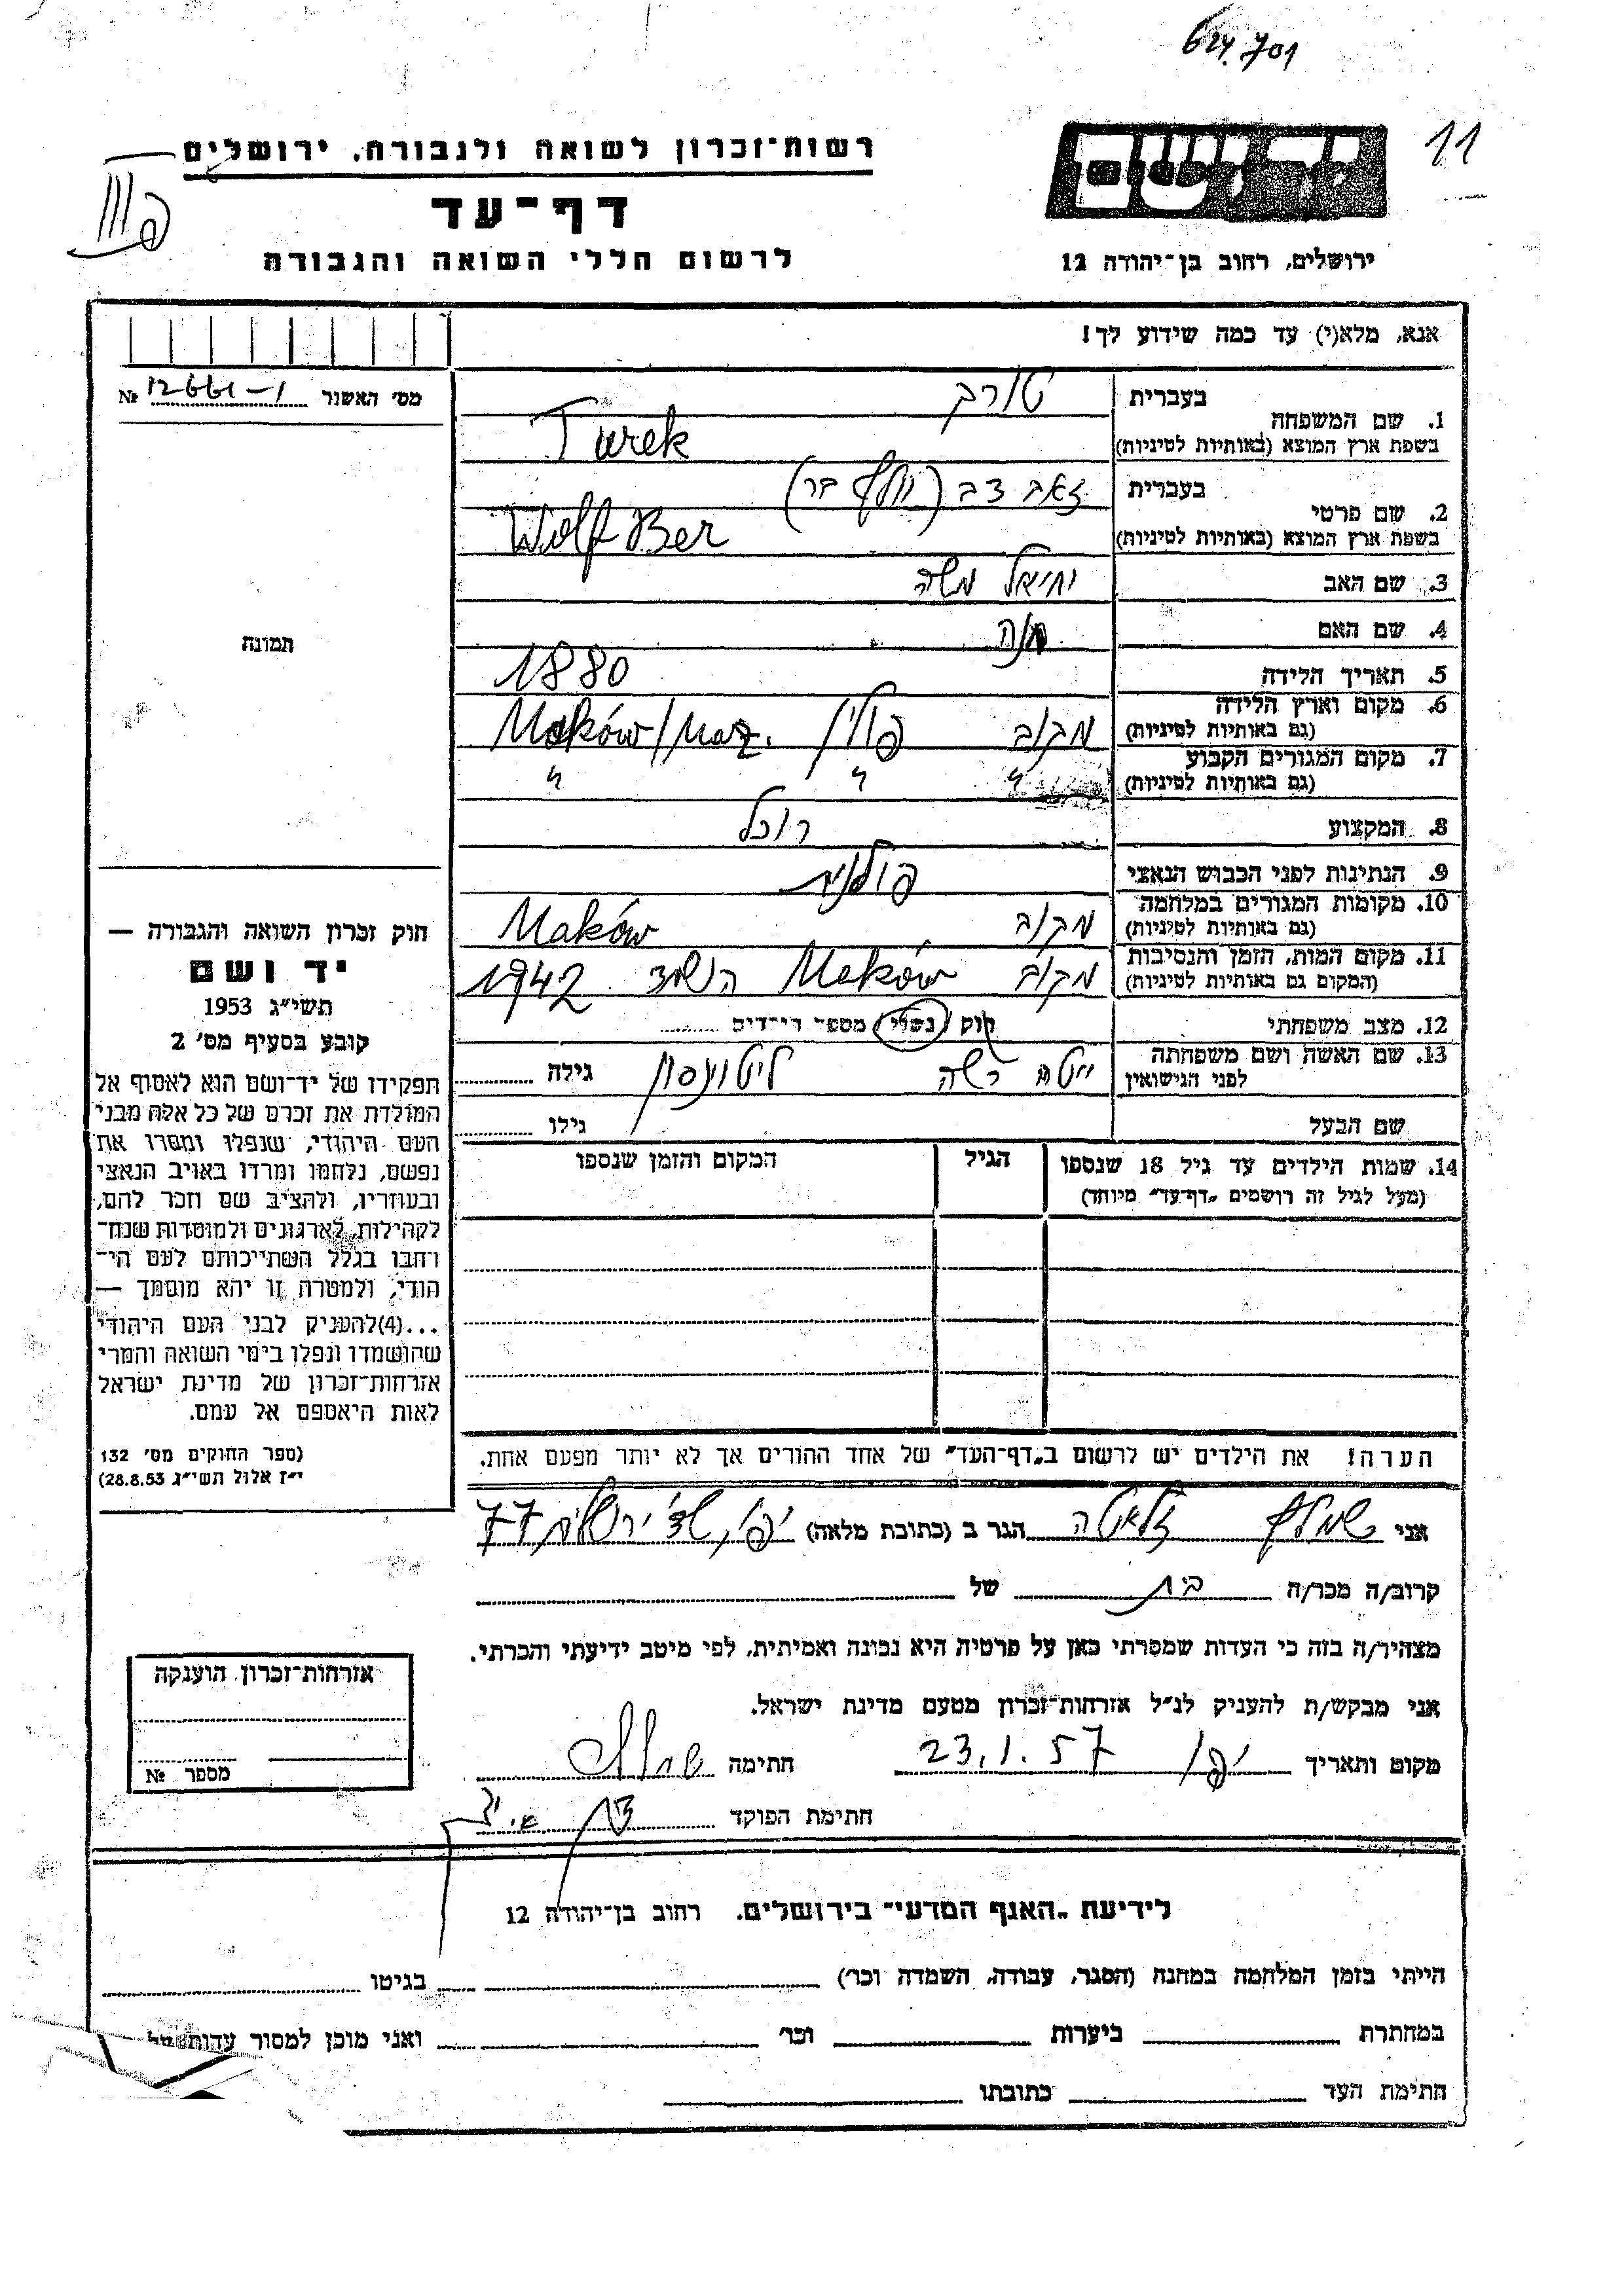 624.701
11
יד ושם
רשות־זכרון לשואה ולגבורה, ירושלים
דף־עד
לרשום חללי השואה והגבורה
ירושלים, רחוב בן־יהודה 12
אנא, מלא(י) עד כמה שידוע לך!
מס׳ האשור № 12661-1
1. שם המשפחה
בעברית טורק
בשפת ארץ המוצא (באותיות לטיניות) Turek
2. שם פרטי
בעברית זאב דב (וולף בר)
בשפת ארץ המוצא (באותיות לטיניות) Wolf Ber
3. שם האב יחיאל משה
4. שם האם
5. תאריך הלידה 1880
6. מקום וארץ הלידה
(גם באותיות לטיניות) מקוב פולין Maków/Maz.
7. מקום המגורים הקבוע
(גם באותיות לטיניות) " " "
8. המקצוע רוכל
9. הנתינות לפני הכבוש הנאצי פולנית
10. מקומות המגורים במלחמה
(גם באותיות לטיניות) מקוב Maków
11. מקום המות, הזמן והנסיבות
(המקום גם באותיות לטיניות) מקוב Maków הושמד 1942
12. מצב משפחתי רוק (נשוי) מספר הילדים
13. שם האשה ושם משפחתה
לפני הנישואין גילה
שם הבעל גילו
14. שמות הילדים עד גיל 18 שנספו הגיל המקום והזמן שנספו
(מעל לגיל זה רושמים „דף־עד״ מיוחד)
הערה! את הילדים יש לרשום ב„דף־העד״ של אחד ההורים אך לא יותר מפעם אחת.
תמונה
חוק זכרון השואה והגבורה —
יד ושם
תשי״ג 1953
קובע בסעיף מס׳ 2
תפקידו של יד־ושם הוא לאסוף אל
המולדת את זכרם של כל אלה מבני
העם היהודי, שנפלו ומסרו את
נפשם, נלחמו ומרדו באויב הנאצי
ובעוזריו, ולהציב שם וזכר להם,
לקהילות, לארגונים ולמוסדות שנח־
רחבו בגלל השתייכותם לעם הי־
הודי, ולמטרה זו יהא מוסמך —
...(4)להעניק לבני העם היהודי
שהושמדו ונפלו בימי השואה והמרי
אזרחות־זכרון של מדינת ישראל
לאות היאספם אל עמם.
(ספר החוקים מס׳ 132
י״ז אלול תשי״ג 28.8.53)
אני הגר ב (כתובת מלאה) יפו, שד׳ ירושלים 77
קרוב/ה מכר/ה בת של
מצהיר/ה בזה כי העדות שמסרתי כאן על פרטיה היא נכונה ואמיתית, לפי מיטב ידיעתי והכרתי.
אני מבקש/ת להעניק לנ״ל אזרחות־זכרון מטעם מדינת ישראל.
מקום ותאריך יפו 23.1.57 חתימה
חתימת הפוקד
אזרחות־זכרון הוענקה
מספר №
לידיעת „האגף המדעי״ בירושלים. רחוב בן־יהודה 12
הייתי בזמן המלחמה במחנה (הסגר, עבודה, השמדה וכר׳) בגיטו
במחתרת ביערות וכר׳ ואני מוכן למסור עדות על
חתימת העד כתובתו